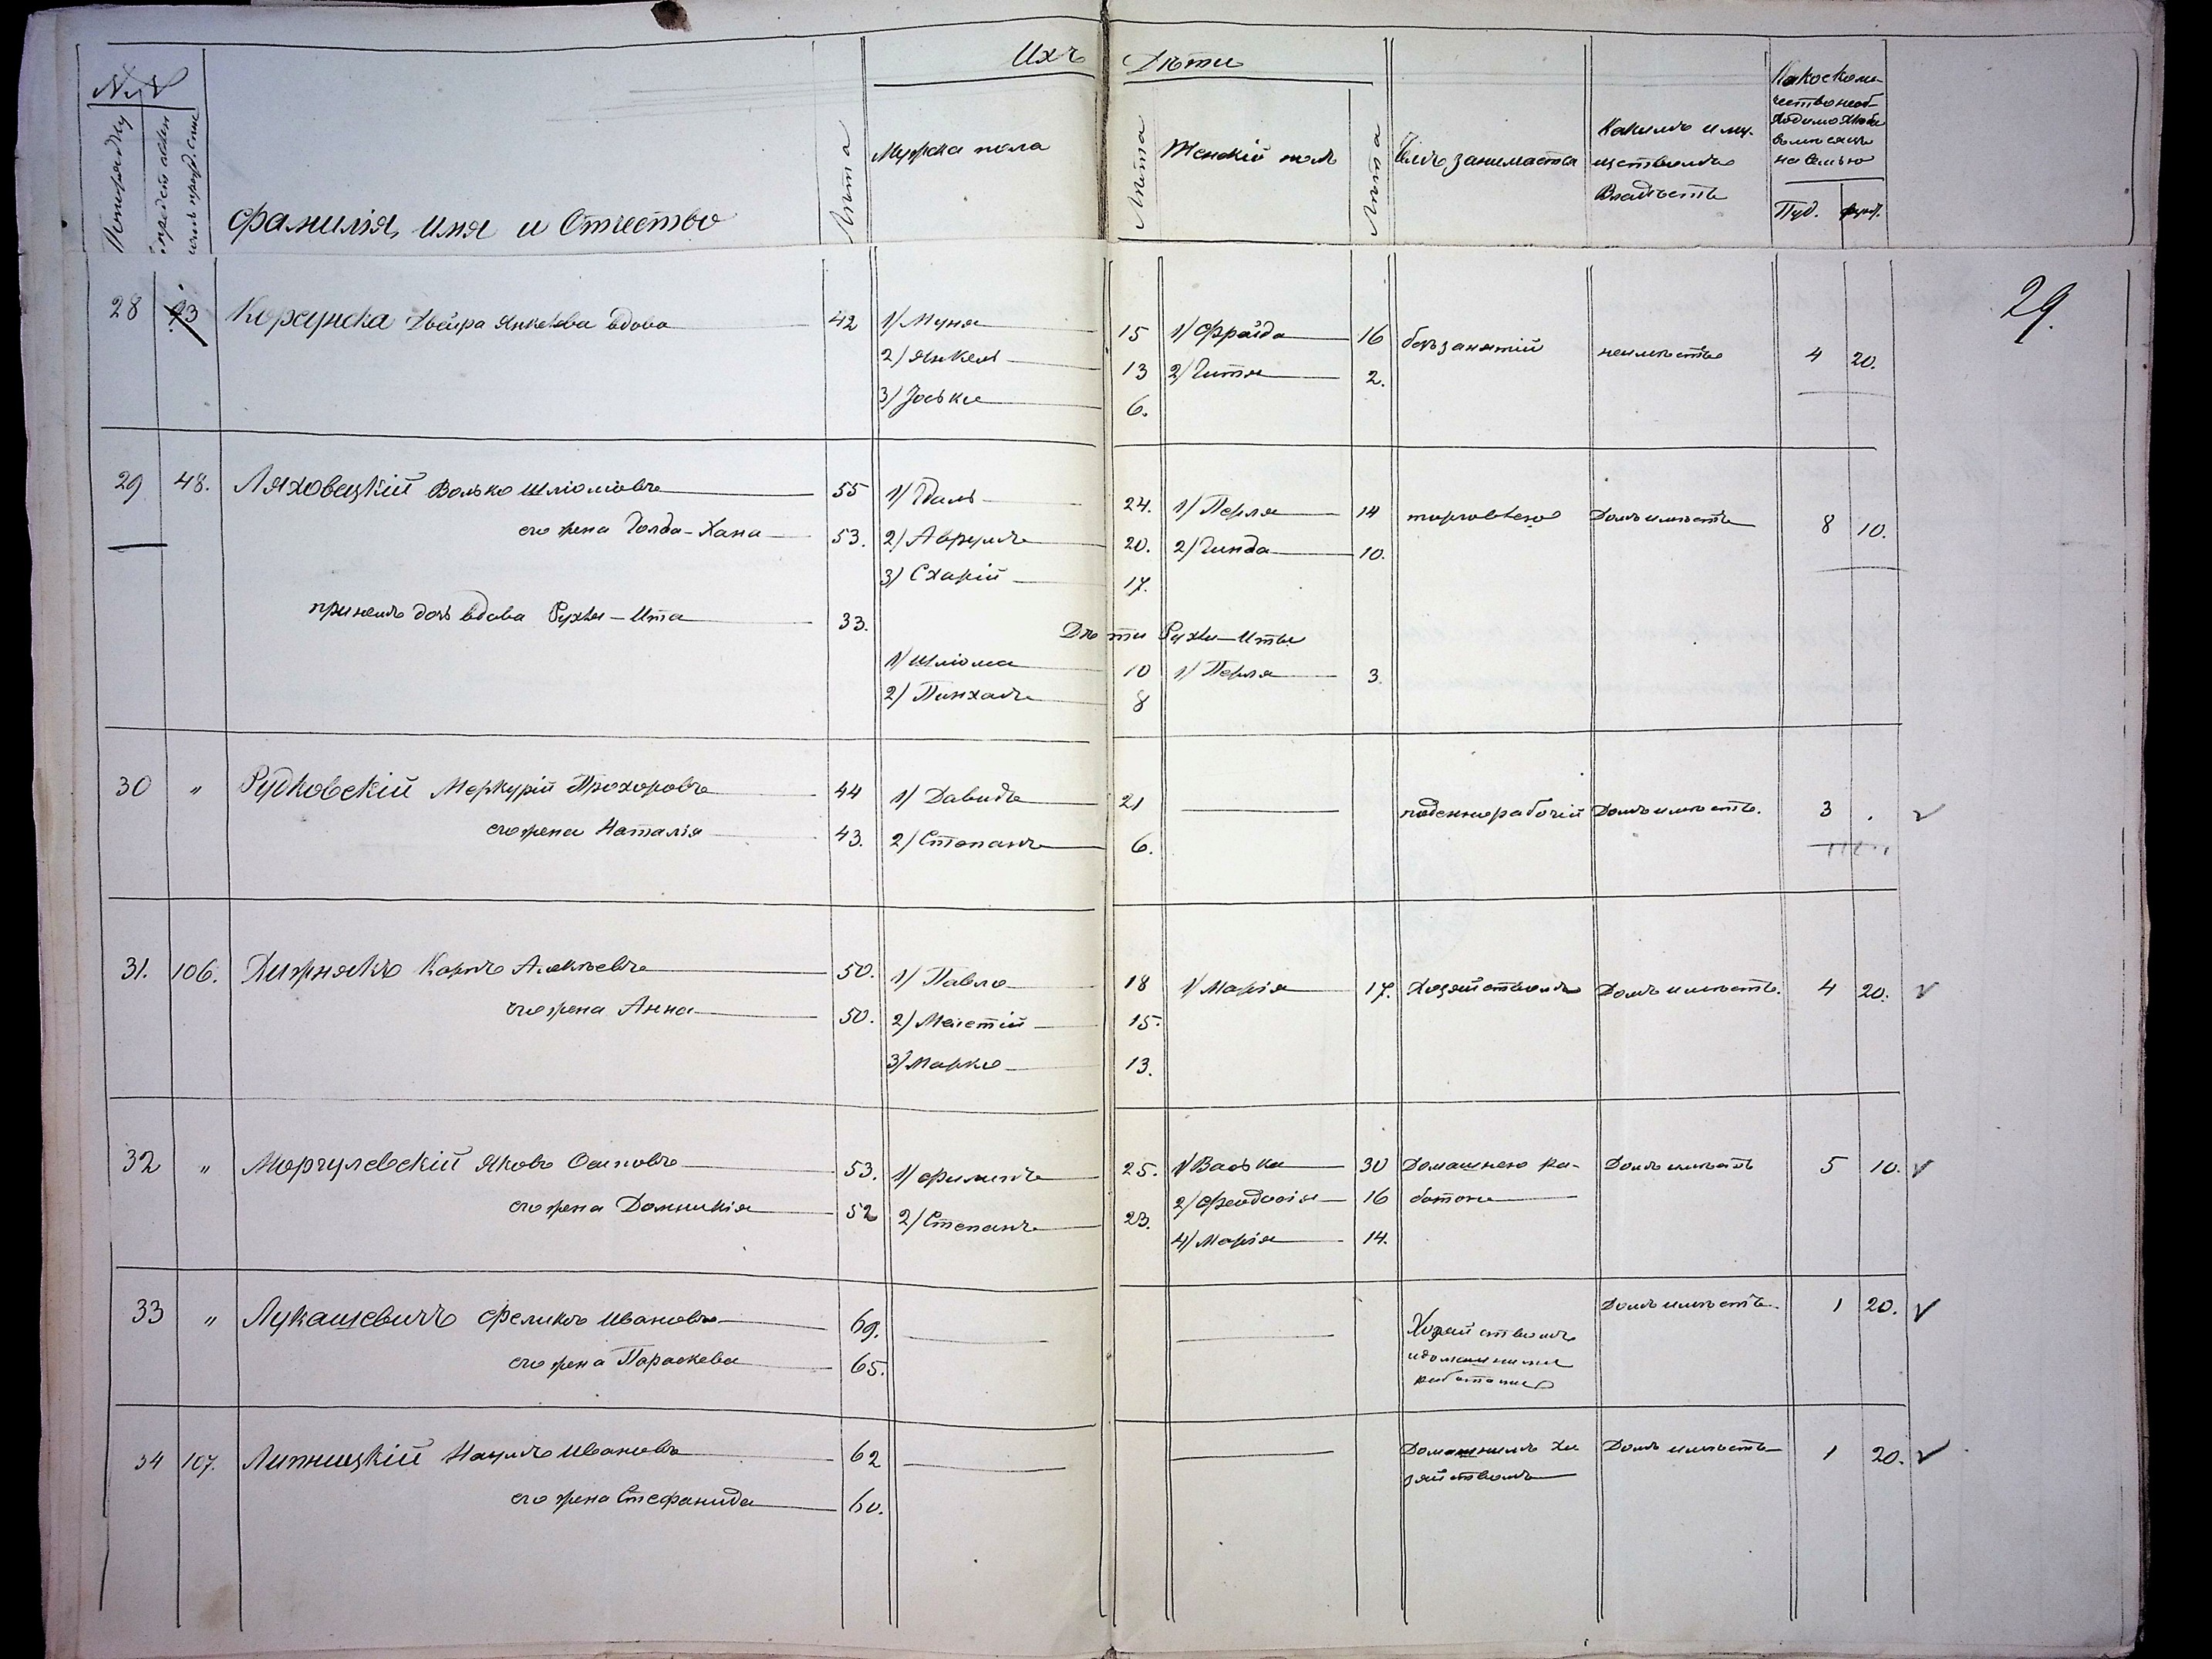 Ихъ Дѣти
№№
По порядку
Фамилія, Имя и Отчество
Лѣта
Мужска пола
Лѣта
Женскій полъ
Лѣта
Чѣмъ занимается
Какимъ иму-
ществомъ
Владѣетъ
на Семью
Пуд. фунт.
29.
28 93 Корсунска Двейра Янкелева вдова 42 1) Муня 15 1) Фрайда 16 безъ занятій неимѣетъ 4 20.
2) Янкель 13 2) Гитля 2.
3) Іосько 6.
29 48. Ляховецкій Волько Шліомовъ 55 1) Гдаль 24. 1) Перля 14 торговлею Домъ имѣетъ 8 10.
его жена Голда-Хана 53. 2) Аврумъ 20. 2) Гинда 10.
3) Схарій 17.
при немъ дочь вдова Рухля-Ита 33.
Дѣти Рухли-Иты
1) Шліома 10 1) Перля 3
2) Пинхасъ 8
30 " Рудковскій Меркурій Прохоровъ 44 1) Давидъ 21 поденнорабочій Домъ имѣетъ. 3 .
его жена Наталія 43. 2) Степанъ 6.
31. 106. Хижнякъ Карпъ Алексѣевъ 50. 1) Павло 18 1) Марія 17. Хозяйствомъ Домъ имѣетъ. 4 20.
его жена Анна 50. 2) Мелетій 15.
3) Марко 13.
32 " Моргулевскій Яковъ Осиповъ 53. 1) Филипъ 25. 1) Васька 30 Домашнею ра- Домъ имѣетъ 5 10.
его жена Домникія 52 2) Степанъ 23. 2) Феодосія 16 ботою
4) Марія 14.
33 " Лукашевичъ Феликъ Ивановъ 69. Домъ имѣетъ. 1 20.
его жена Параскева 65. Хозяйствомъ
и домашними
работами
34 107. Липницкій Наумъ Ивановъ 62 Домашнимъ хо Домъ имѣетъ 1 20.
его жена Стефанида 60. зяйствомъ